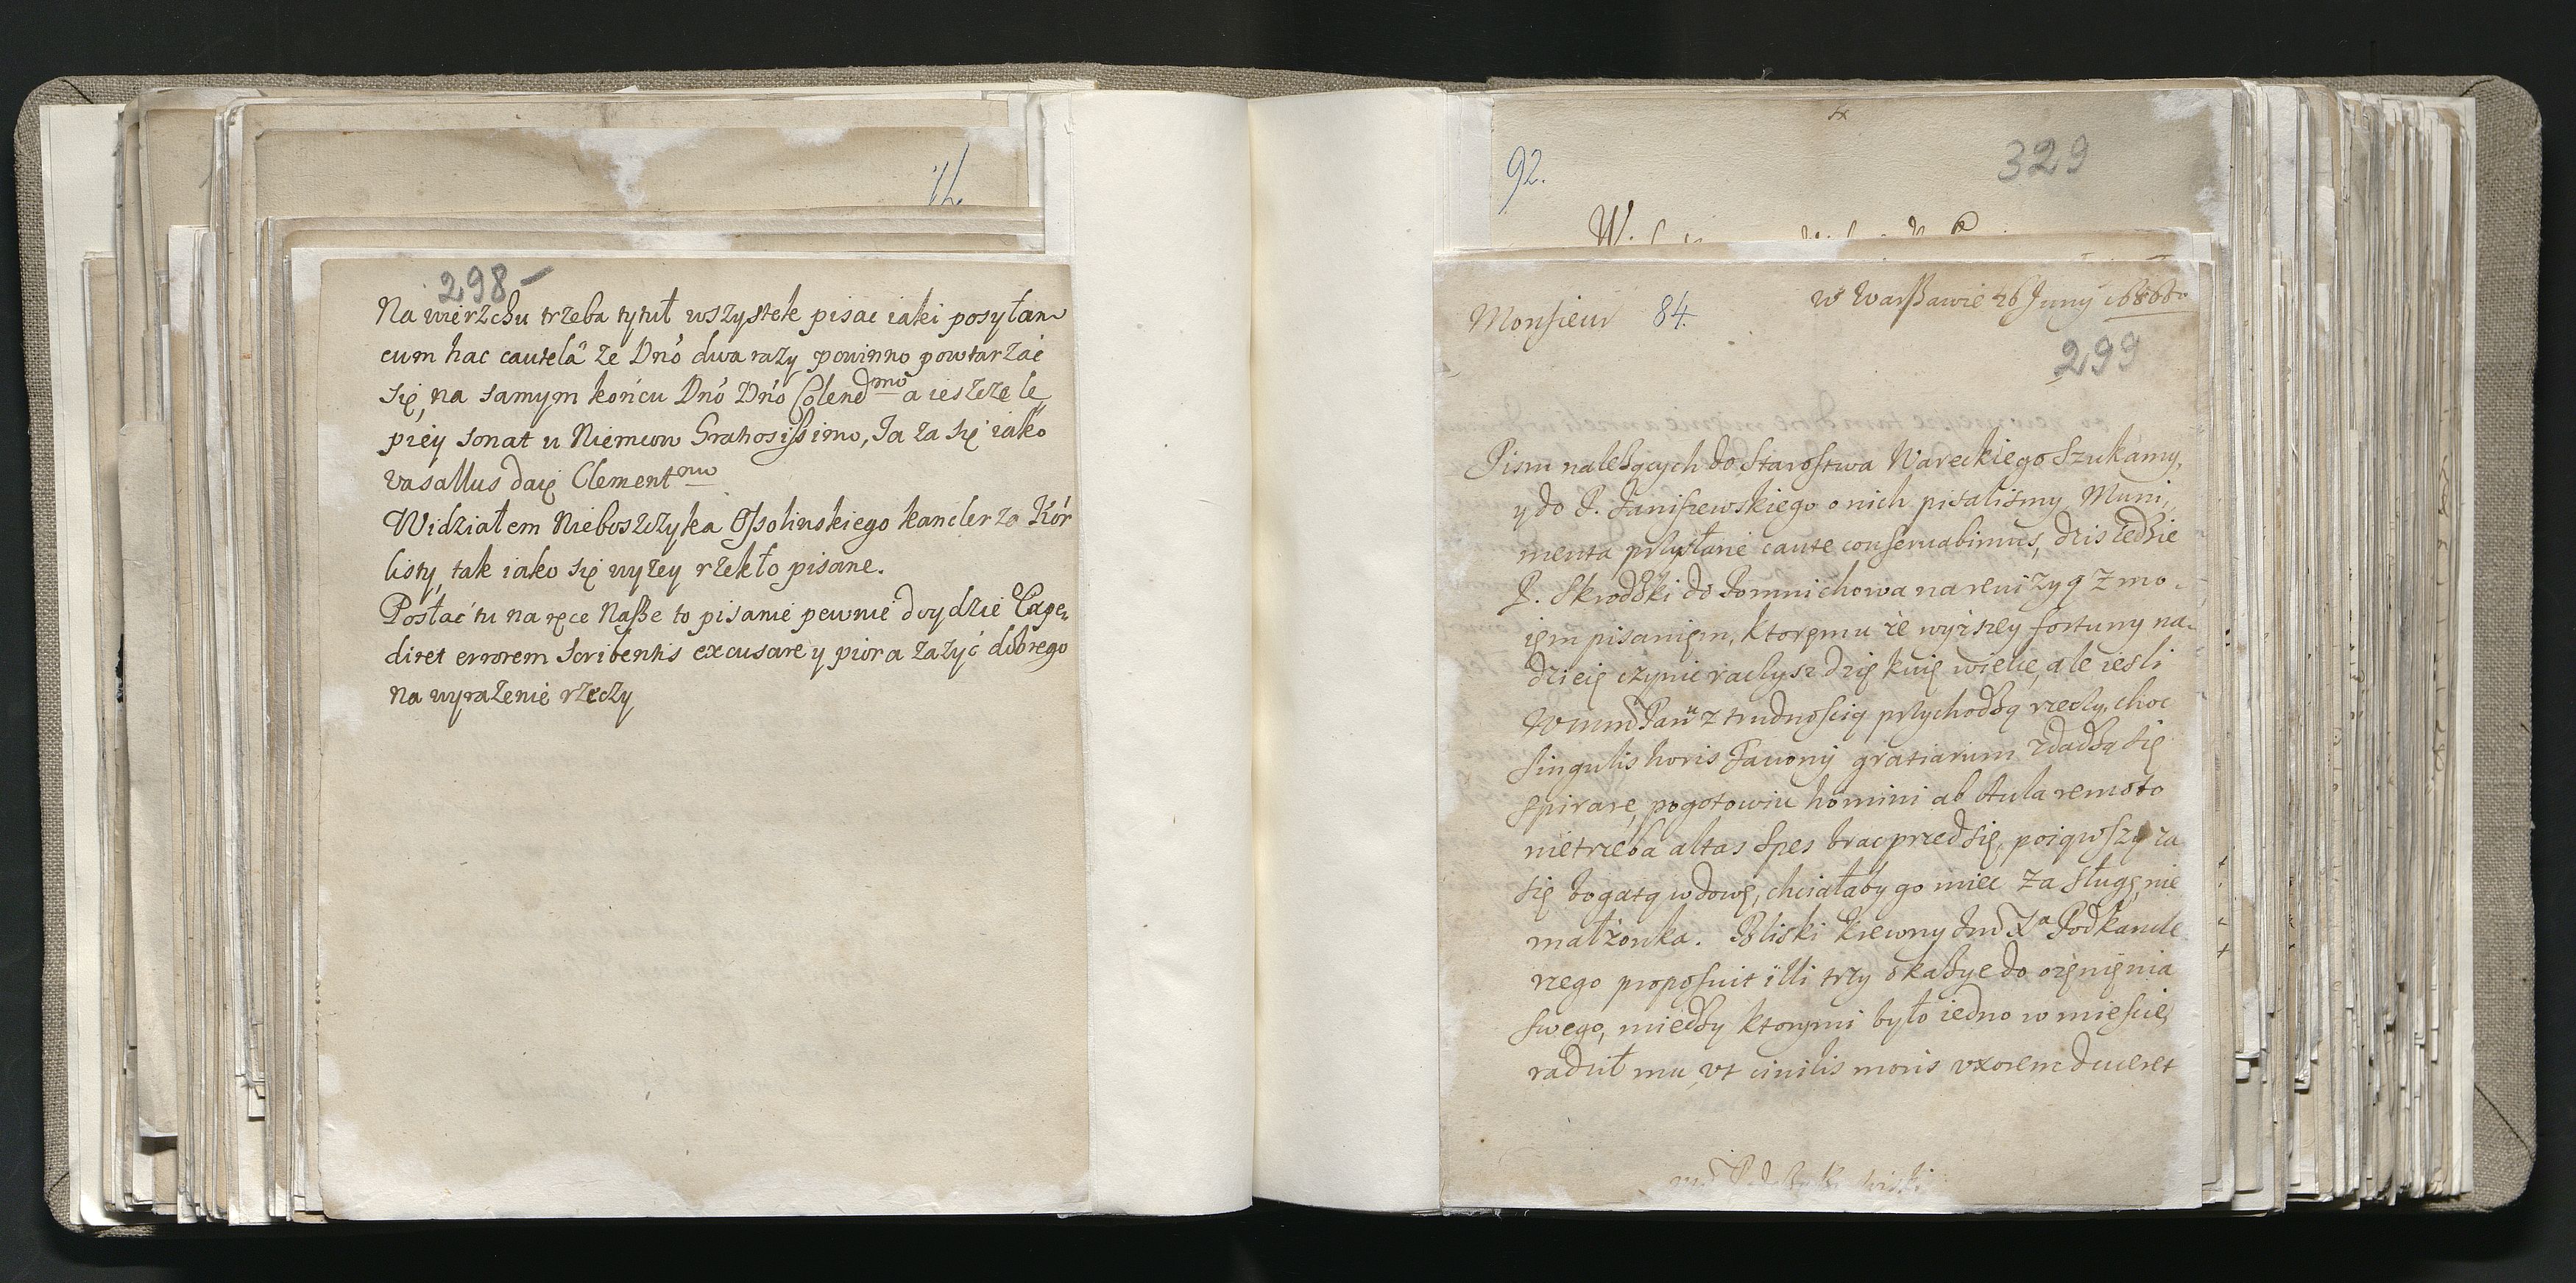 298-
Na wierzchu trzeba tytuł wszystek pisac iaki posyłam
cum hac cautelâ że Dnõ dwa razy powinno powtarzać
się, na samym końcu Dnõ Dnõ Colendmo a ieszcze le
piey sonat u Niemcow Gratiosissimo, Ja za się iako
vasallus daię Clementmo
Widziałem Nieboszczyka Ossolinskiego kanclerza Kor
listy, tak iako się wyzey rzekło pisane.
Posłać tu na ręce Nasze to pisanie pewnie doydzie
diret errorem scribentis excusare y piora zażyć dobrego
na wyrażenie rzeczy
92.
329
Monsieur 84.
w Warszawie 26 Juny
299
Pism należących do Starostwa Wareckiego szukamy,
y do P. Janiszewskiego o nich pisaliśmy, Muni,
menta przysłane caute conservabimus, dzis iedzie
P. Skrodzki do Pomnichowa na rewizyą z mo-
iem pisaniem, ktoremu że wyższey fortuny na-
dzieię czynić raczysz dzię kuię wielie, ale iesli
Wmm Panu z trudnoscią przychodzą rzeczy, choc
singulis horis Favonij gratiarum zdadzą się
spirare, pogotowiu homini ab Aula remoto
nietrzeba altas spes brac przed się, poiąwszy za
się bogatą wdowę, chciałaby go miec za sługę, nie
małżonka. Bliski krewny Jmć Xa Podkancle
rzego proposuit illi trzy okazye do ożęnięnia
swego, miedzy ktorymi było iedno w miescie,
radził mu, vt civilis moris vxorem duceret